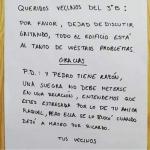 QUERIDOS VECINOS DEL 3ºB:
POR FAVOR, DEJAD DE DISCUTIR
GRITANDO, TODO EL EDIFICIO ESTÁ
AL TANTO DE VUESTROS PROBLEMAS.
GRACIAS
P.D.: Y PEDRO TIENE RAZÓN,
UNA SUEGRA NO DEBE METERSE
EN UNA RELACIÓN, ENTENDEMOS QUE
ESTÉS ESTRESADA POR LO DE TU AMIGA
RAQUEL, PERO ELLA SE LO BUSCÓ CUANDO
DEJÓ A MARIO POR RICARDO.
TUS VECINOS